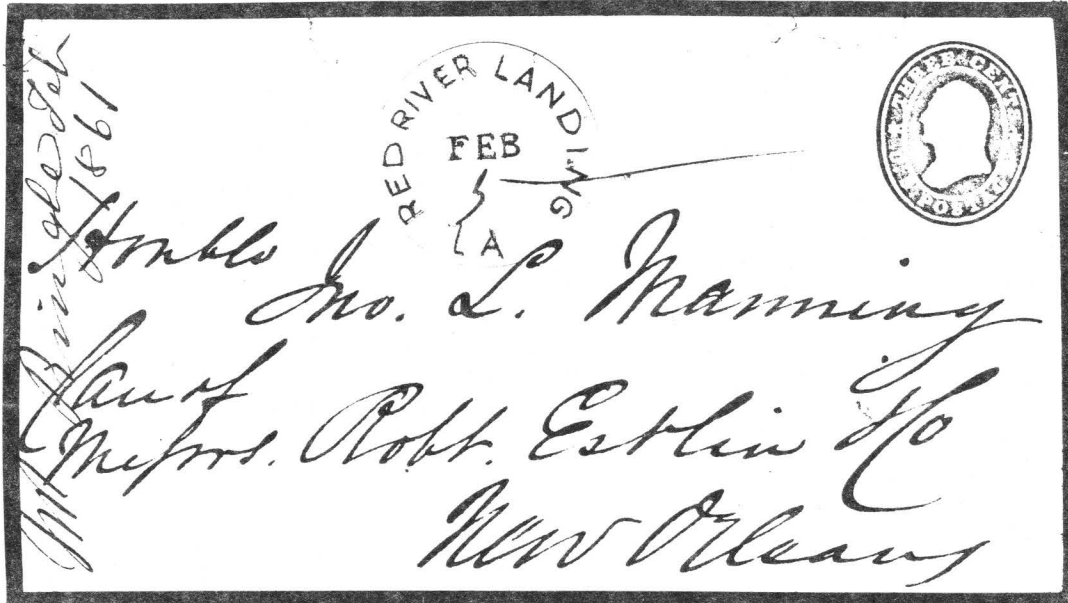 RED RIVER LANDING
FEB
LA
THREE CENTS
POSTAGE
Honble
Jno. L. Manning
Care of
Messrs. Robt. Estlin & Co
New Orleans
Feb
1861